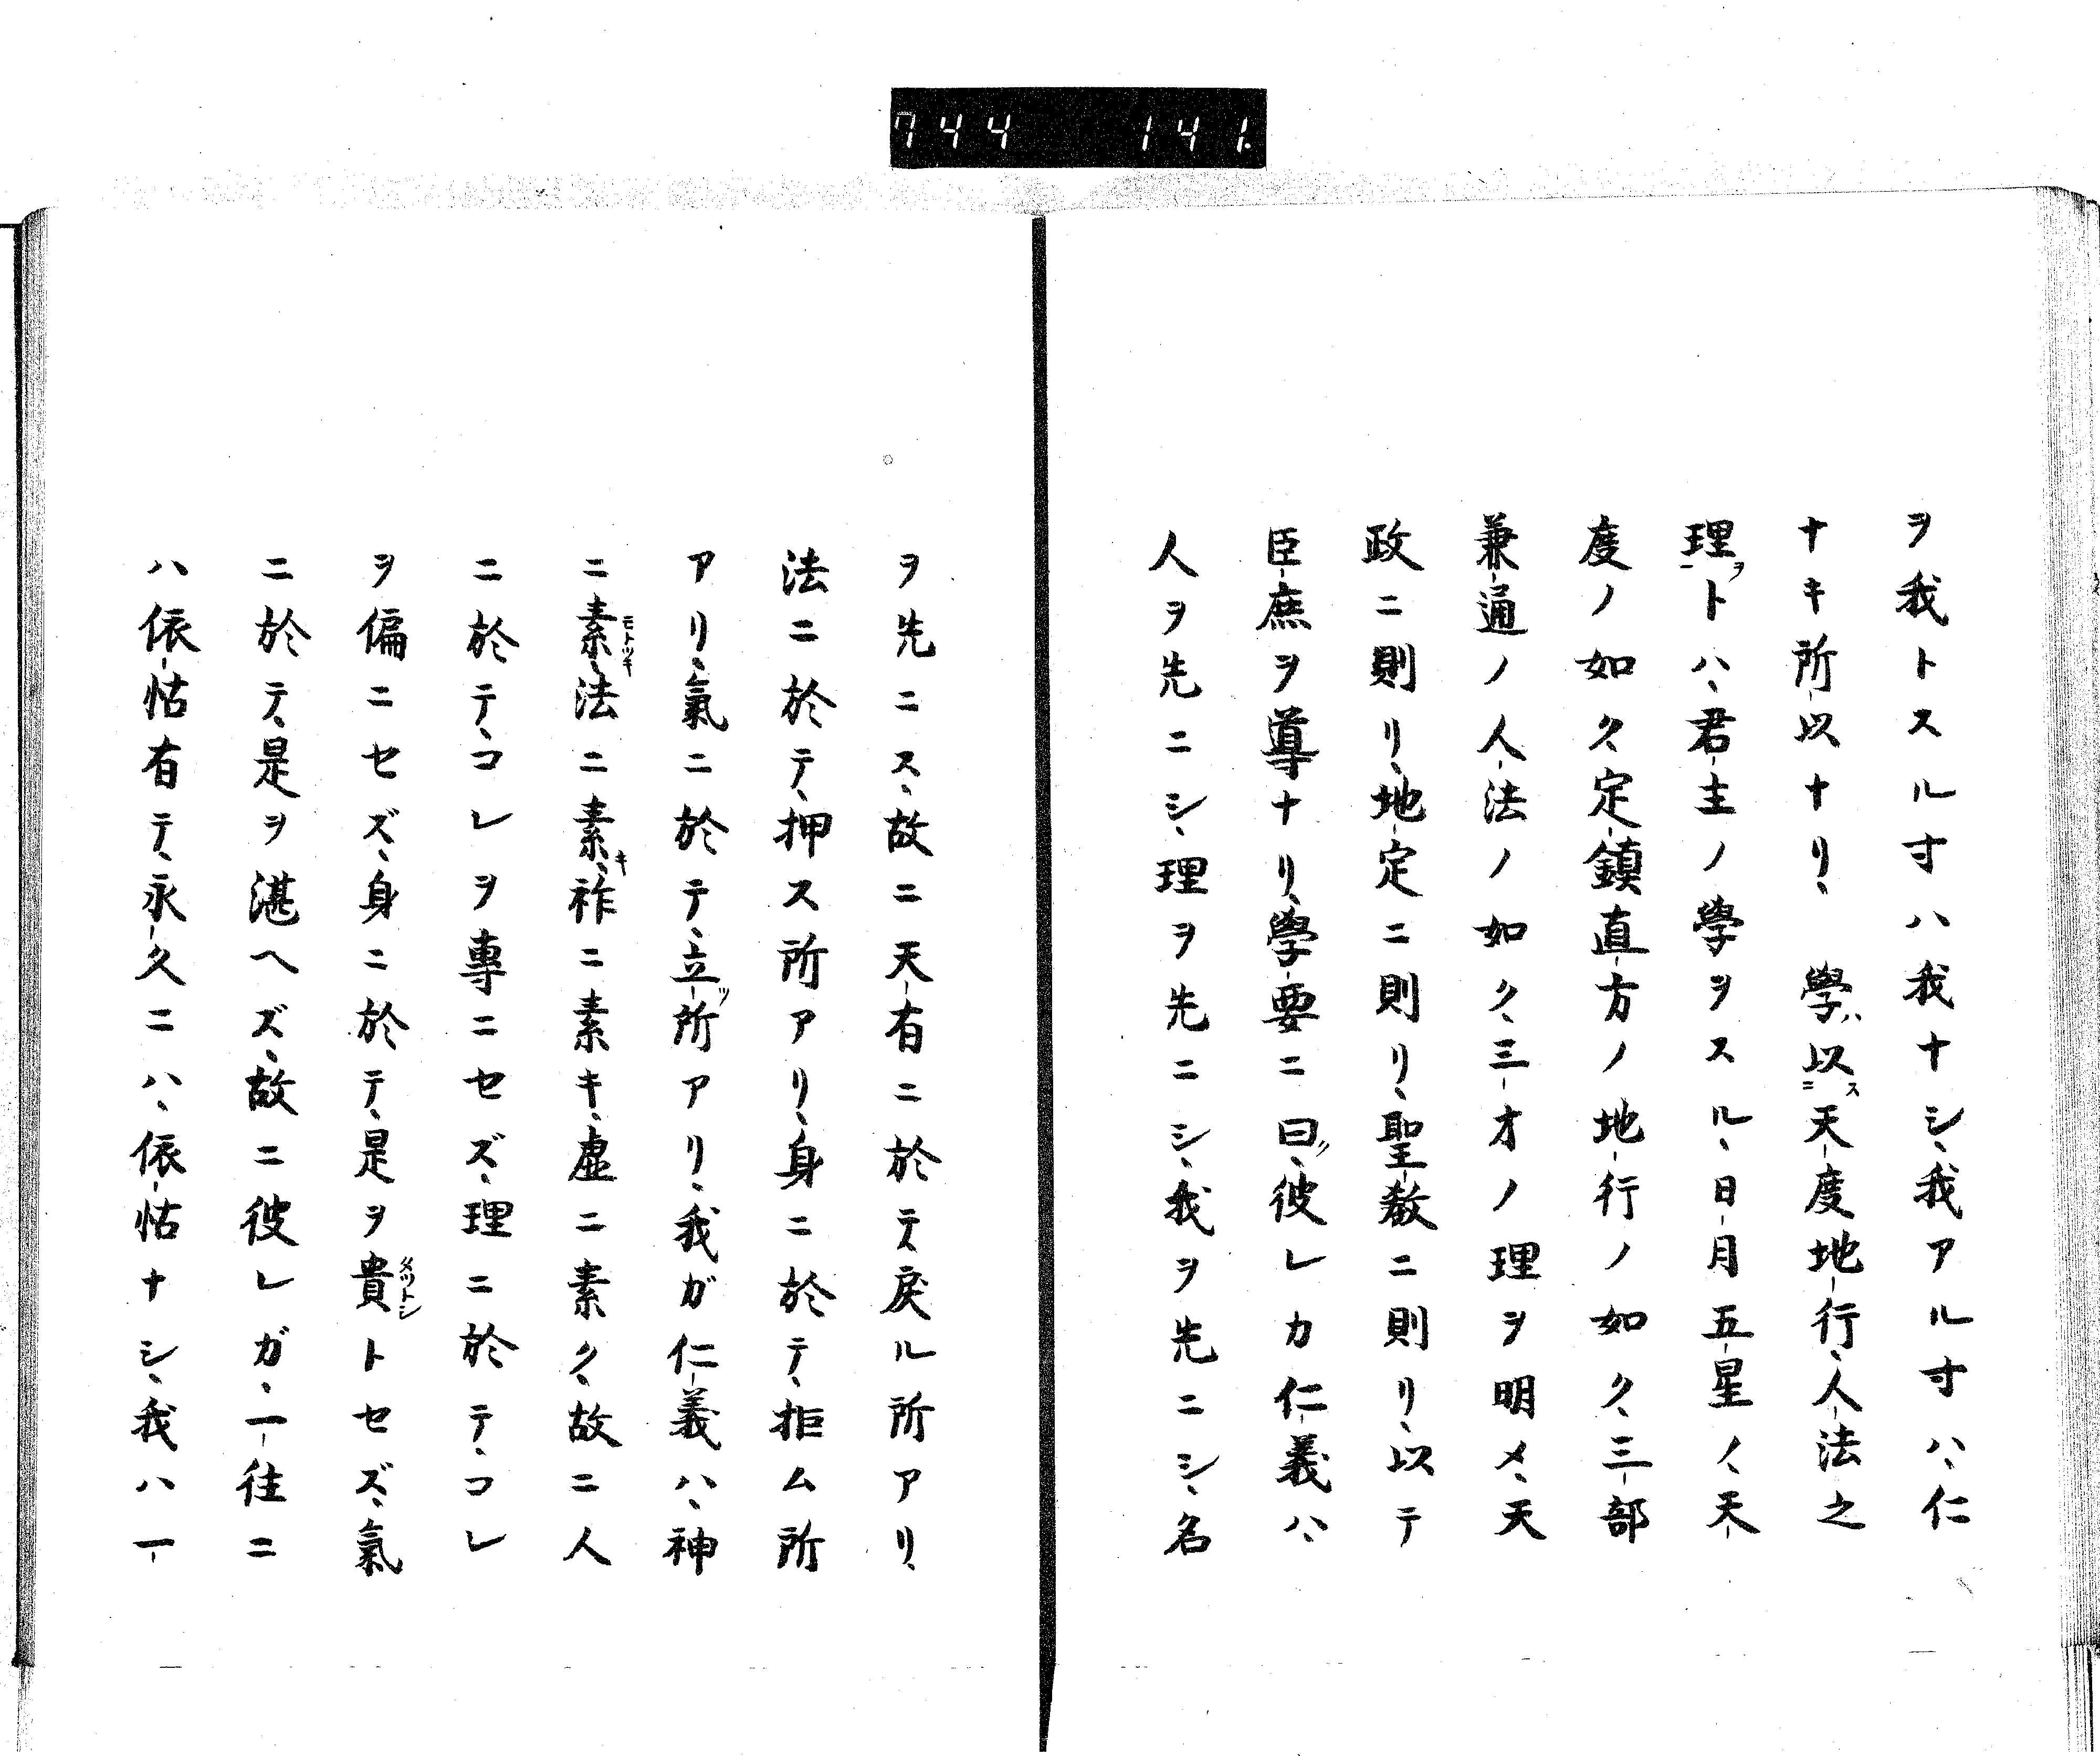 744 141.
ヲ我トスル寸ハ我ナシ、我アル寸ハ、仁
ナキ所以ナリ、學ハ以ス二天度地行、人法之
理ヲ一トハ、君主ノ學ヲスル、日月五星ノ、天
度ノ如ク、定鎮直方ノ地行ノ如ク、三部
兼通ノ人法ノ如ク、三才ノ理ヲ明メ、天
政ニ則リ、地定ニ則リ、聖教ニ則リ、以テ
臣庶ヲ導ナリ、學要ニ曰ク、彼レカ仁義ハ、
人ヲ先ニシ、理ヲ先ニシ、我ヲ先ニシ、名
ヲ先ニス、故ニ天有ニ於テ戾ル所アリ、
法ニ於テ、押ス所アリ、身ニ於テ、拒ム所
アリ、氣ニ於テ、立ツ所アリ、我ガ仁義ハ、神
ニ素モトツキ、法ニ素キ、祚ニ素キ、虛ニ素ク、故ニ人
ニ於テ、コレヲ專ニセズ、理ニ於テ、コレ
ヲ偏ニセズ、身ニ於テ、是ヲ貴タツトシトセズ、氣
ニ於テ、是ヲ湛ヘズ、故ニ彼レガ、一往ニ
ハ依怙有テ、永久ニハ、依怙ナシ、我ハ一